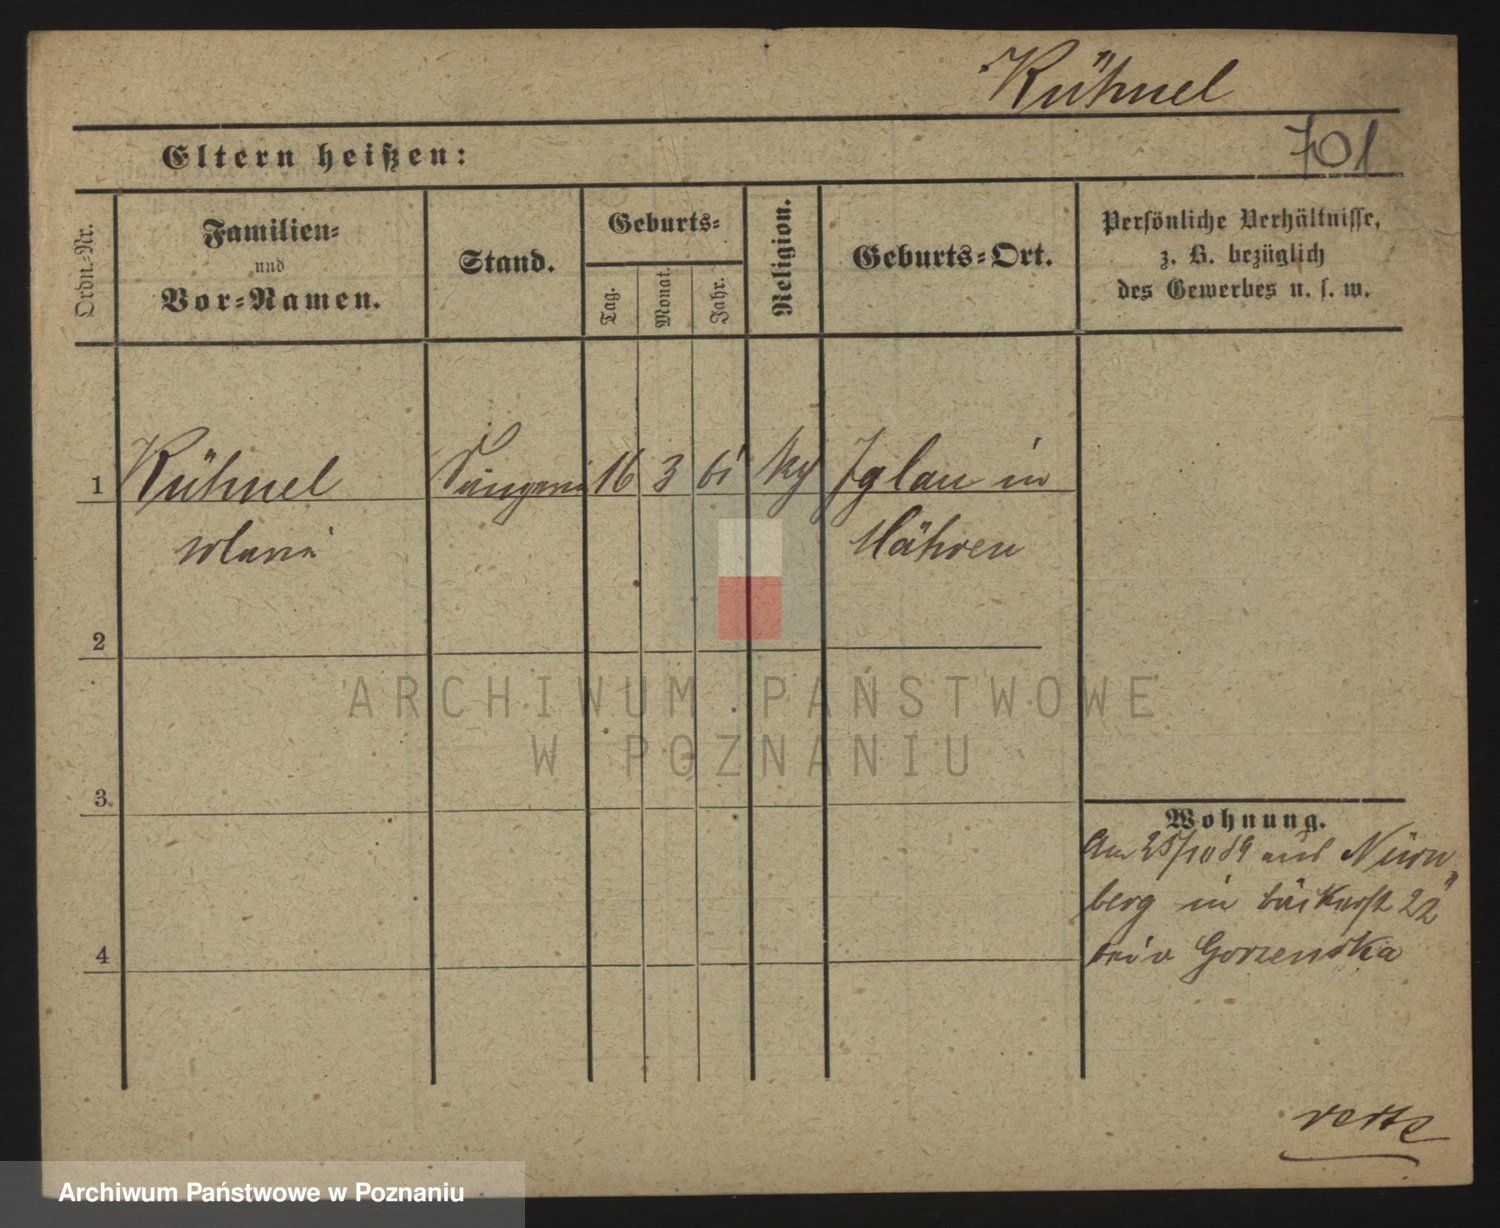 Kühnel
701
Eltern heißen:
Ordn.-Nr.
Familien-
und
Vor-Namen.
Stand.
Geburts-
Tag.
Monat.
Jahr.
Religion.
Geburts-Ort.
Persönliche Verhältnisse,
z. B. bezüglich
des Gewerbes u. s. w.
1 Kühnel 16 3 Iglau in
Marie Mähren
2
3.
4
Wohnung.
Am 25/10 89 aus Nürn-
berg in Bäckerst 22
bei Gorzenska
verte
ARCHIWUM PAŃSTWOWE
W POZNANIU
Archiwum Państwowe w Poznaniu